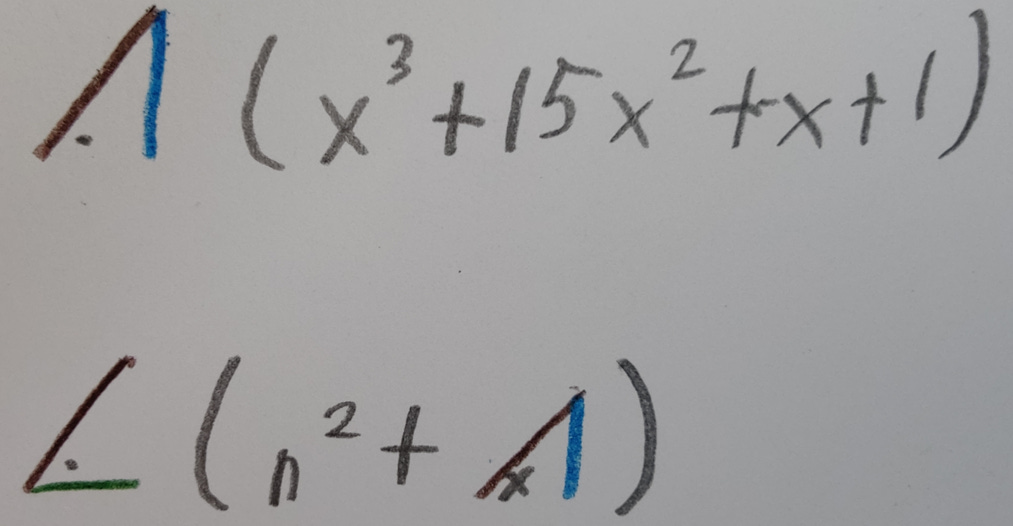 ⩘ (x³ + 15x² + x + 1)
∠ (n² + x)